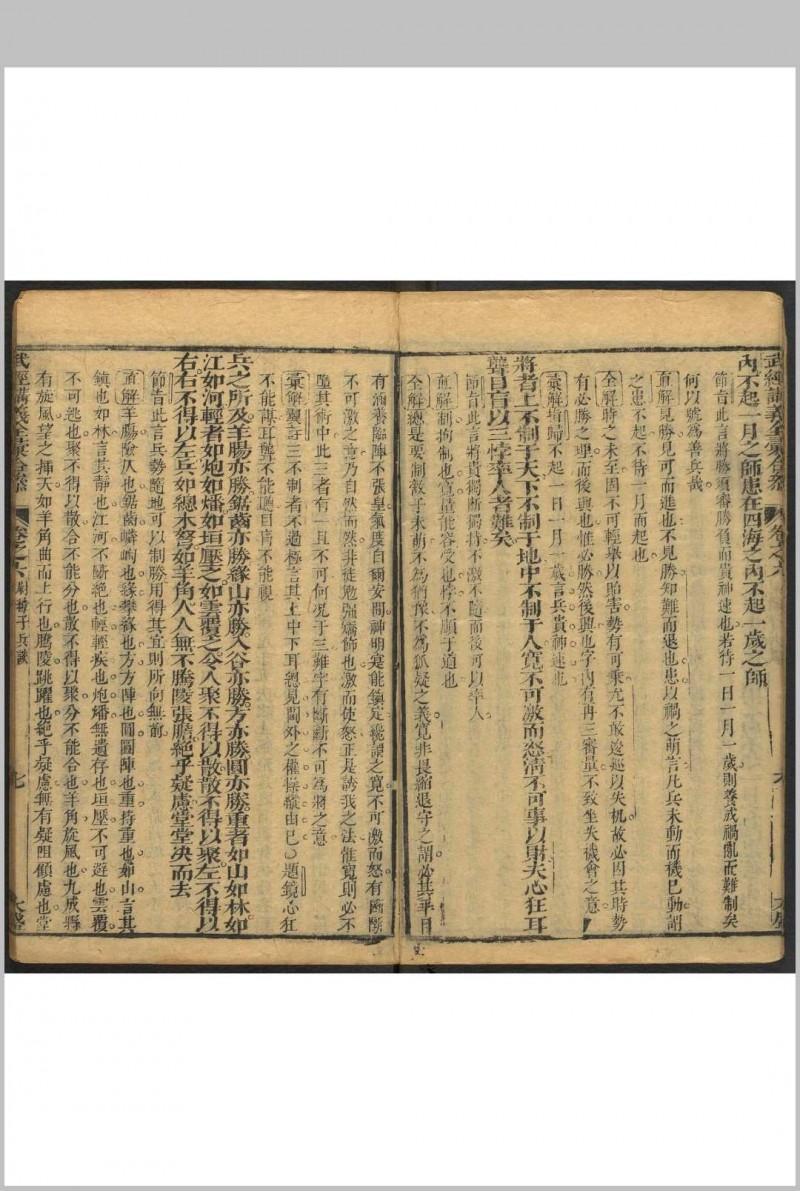 武經講義全彙合參 卷之六
內不起一月之師患在四海之內不起一歲之師
節旨此言將勝須審勝後而貴神速也若待一日一月一歲則養成禍亂而難制矣
何以號為善兵哉
直解見勝見可而進也不見勝知難而退也患以禍之萌言凡兵未動而機已動謂
之患不起不待一月而起也
全解時之未至固不可輕舉以貽害勢有可乘尤不敢逡巡以失机故必因其時勢
有必勝之理而後興也惟必勝然後興也字內有再三審量不致坐失機會之意
彙解 不起一日一月一歲言兵貴神速也
將者上不制于天下不制于地中不制于人寬不可激而怒清不可事以財夫心狂耳
聾目盲以三悖率人者難矣
節旨此言將貴獨斷獨持不激不隨而後可以率人
直解制拘制也寬量能容受也悖不順于道也
全解總是要制敵于未萌不為猶豫不為狐疑之義寬非畏縮退守之謂必其平日
有涵養臨陣不張皇氣度自爾安閒神明定能鎮定纔謂之寬不可激而怒有斷斷
不可激之意乃自然而然非徒勉強矯飾也激而使怒正是誘我之法惟寬則必不
墮其術中此三者有一且不可何況于三難字有斷斷不可為將之意
彙解 三不制者不過極言其上中下耳總見閫外之權操縱由已○題鏡心狂
不能謀耳聾不能聽目盲不能視
兵之所及羊腸亦勝鋸齒亦勝緣山亦勝入谷亦勝方亦勝圓亦勝重者如山如林如
江如河輕者如炮如燔如垣壓之如雲覆之令人聚不得以散散不得以聚左不得以
右右不得以左兵如總木弩如羊角人人無不騰陵張膽絕乎疑慮堂堂決而去
節旨此言兵勢隨地可以制勝用得其宜則所向無前
直解羊腸險仄也鋸齒嶙峋也緣攀緣也方方陣也圓圓陣也重持重也如山言其
鎮也如林言其靜也江河不斷絕也輕輕疾也炮燔無遺存也垣壓不可避也雲覆
不可逃也聚不得以散合不能分也散不得以聚分不能合也羊角旋風也九成縣
有旋風望之插天如羊角曲而上行也騰陵跳躍也絕乎疑慮無有疑阻顧慮也堂
武經講義全彙合參 卷之六 尉繚子兵談 七 大盛